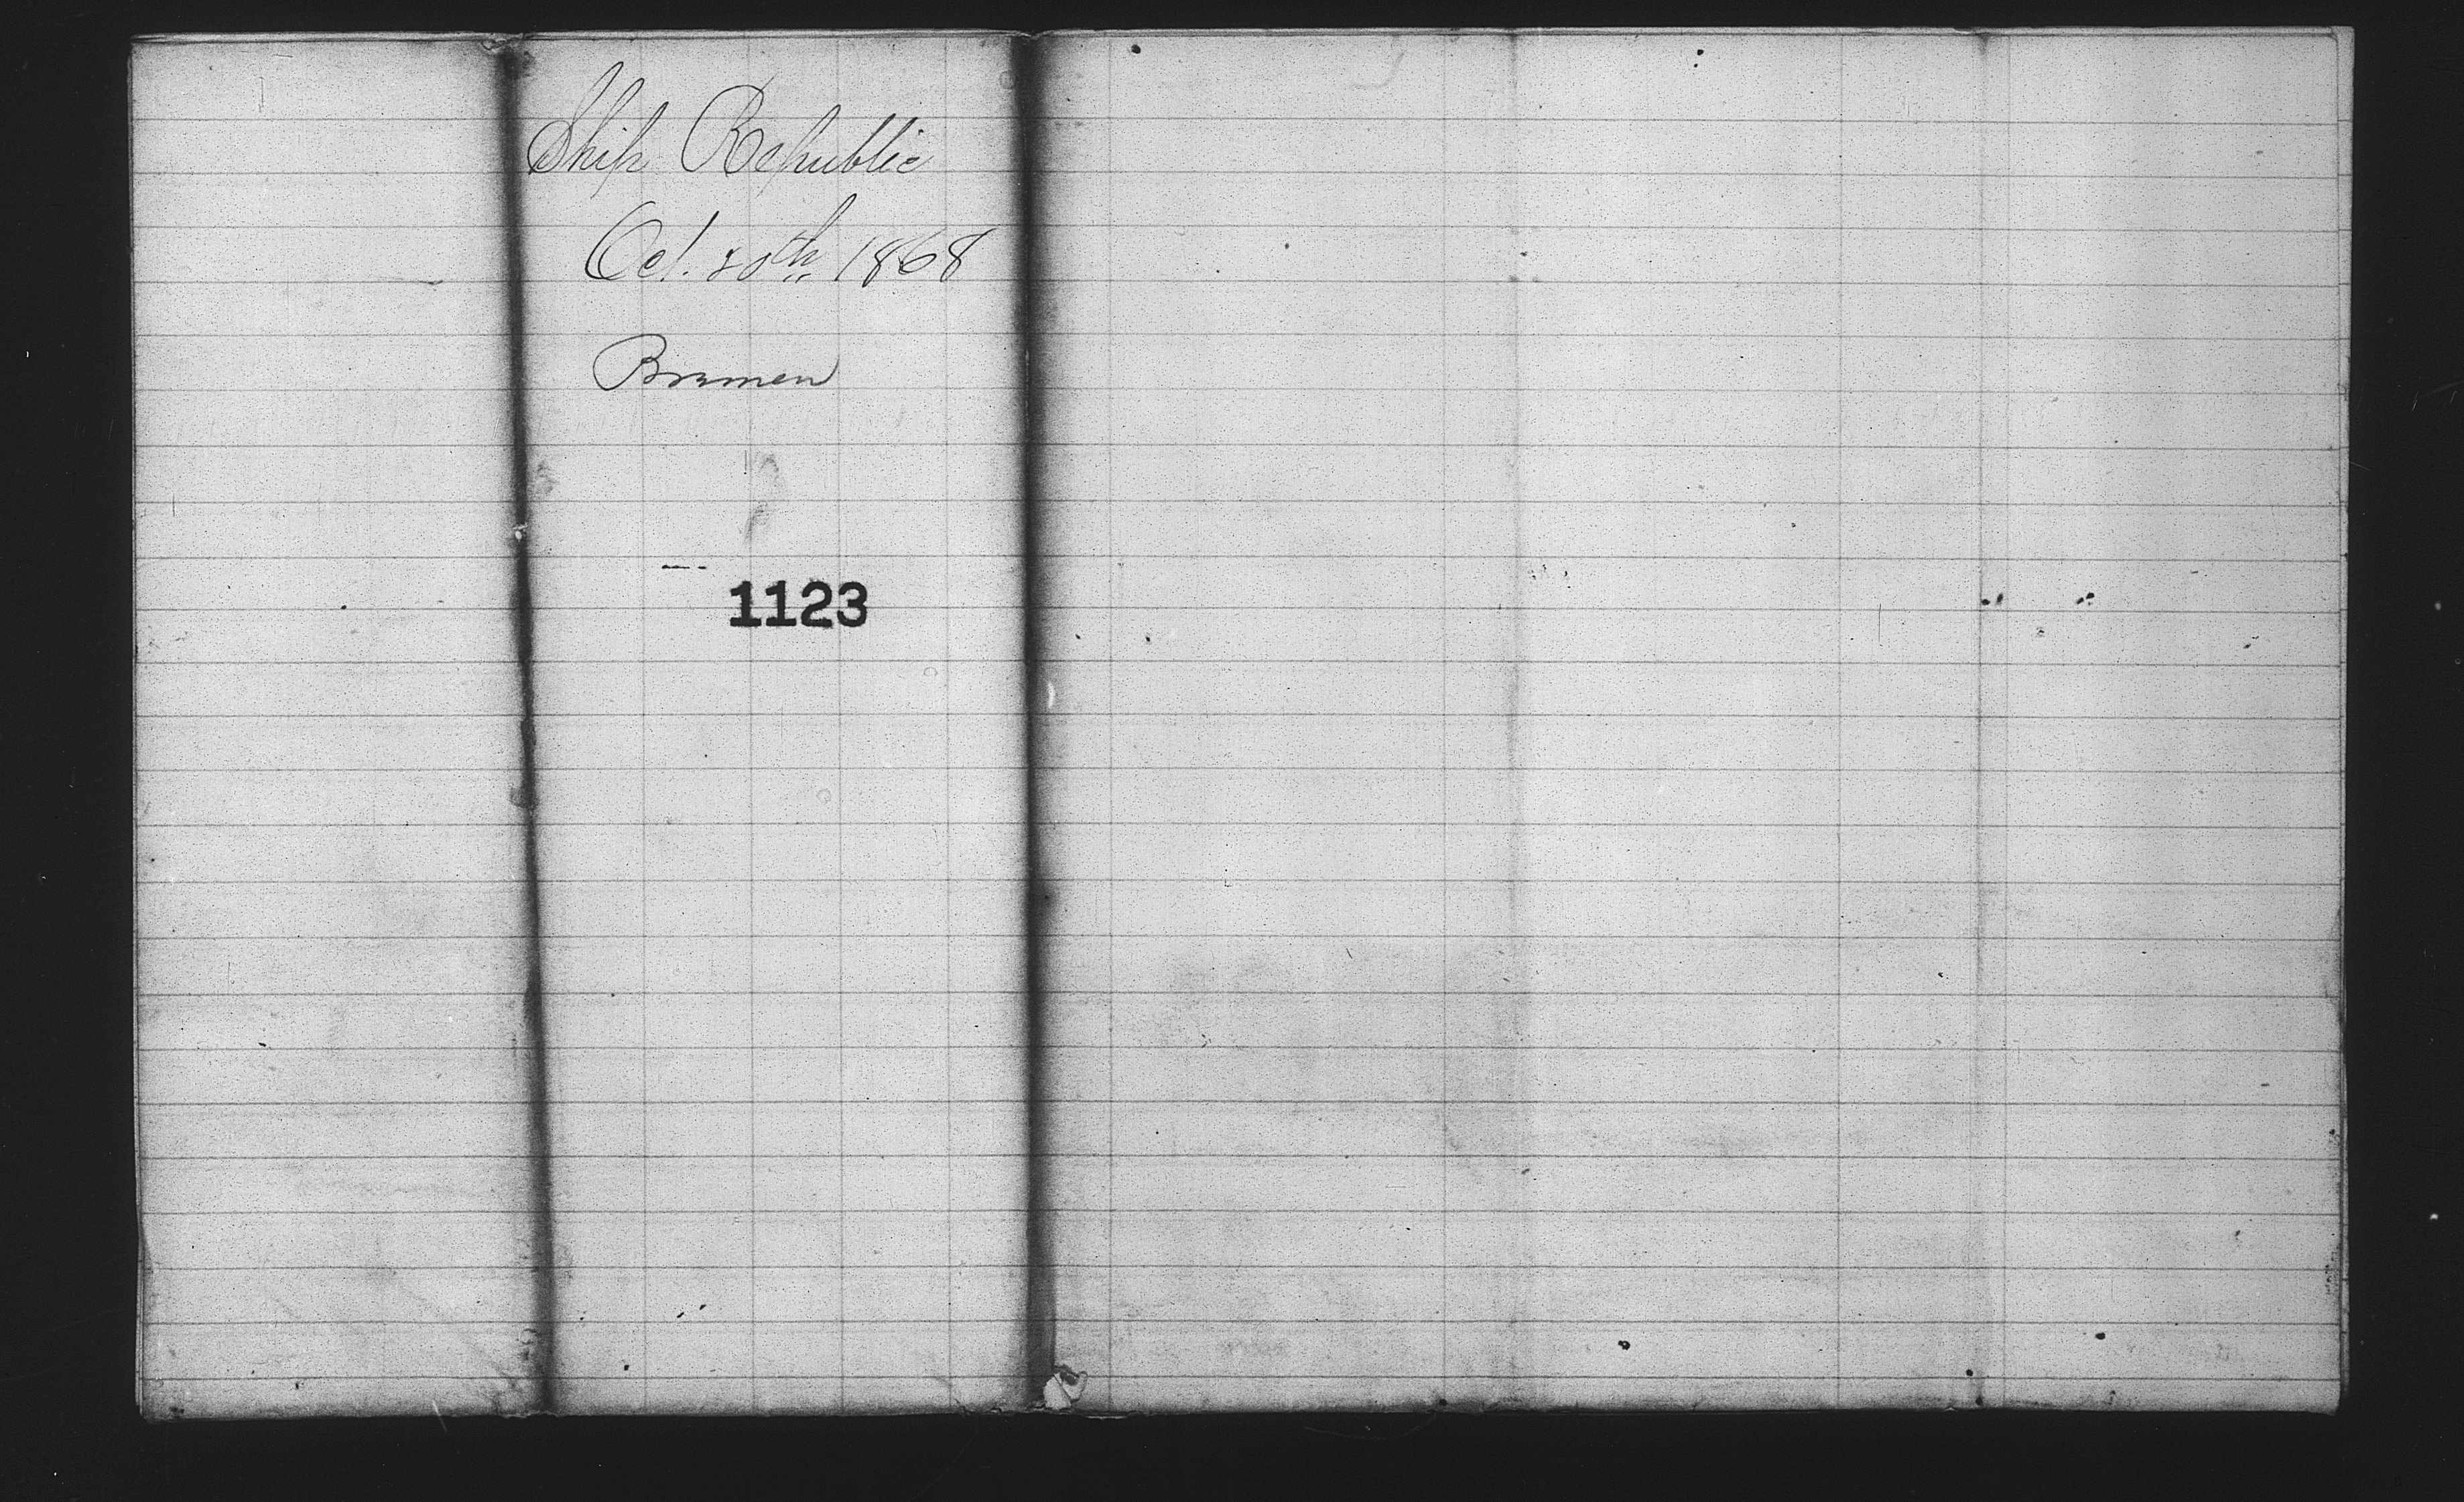 Ship Republic
Oct. 20th 1868
Bremen
1123